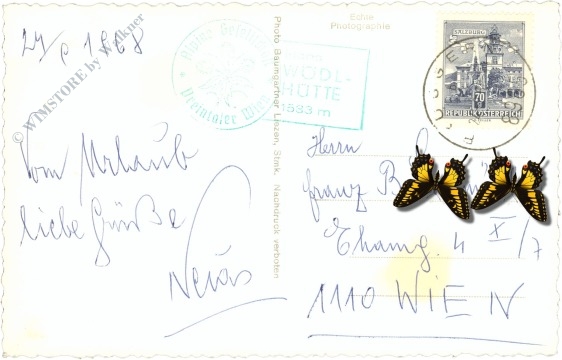 24/8 1968
© WIMSTORE by Walkner
Alpine Gesellschaft
Preintaler Wien
WÖDL-
HÜTTE
1533 m
Echte
Photographie
SALZBURG
70
REPUBLIK ÖSTERREICH
Photo Baumgartner Liezen, Stmk. Nachdruck verboten
Vom Urlaub
liebe Grüße
Herrn
Franz
4 X/7
1110 WIEN